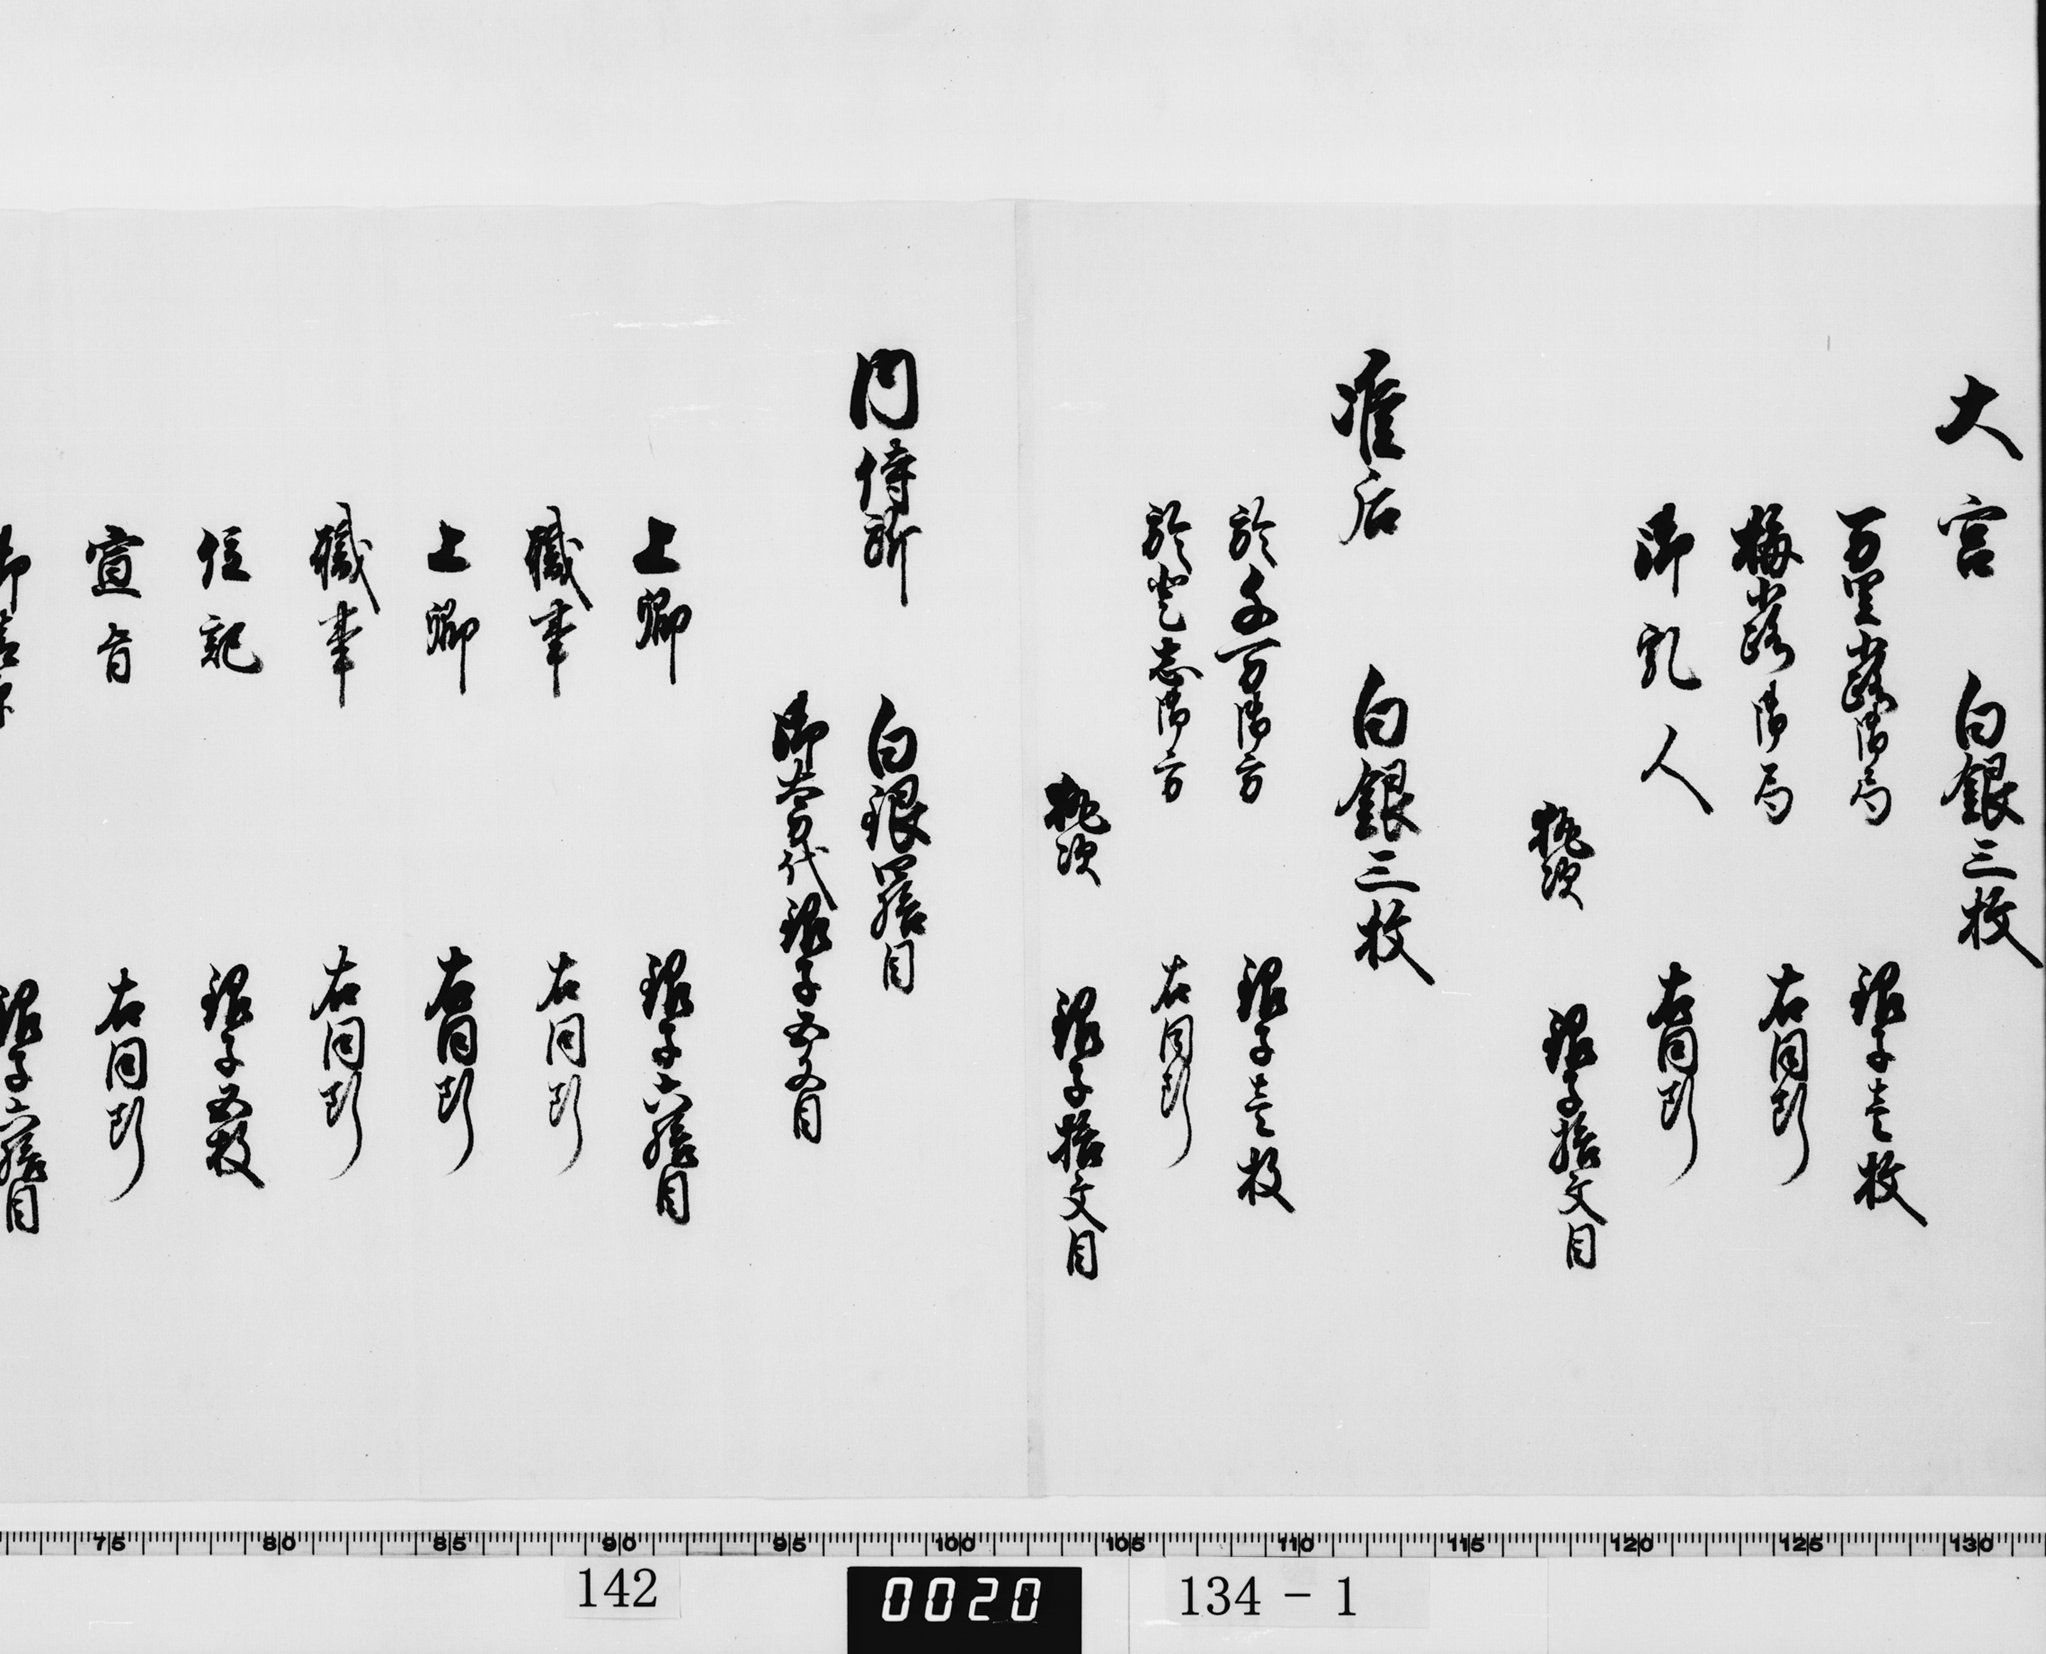 大宮 白銀三枚
万里小路御局 銀子壱枚
梅小路御局 右同断
御乳人 右同断
執次 銀子拾文目
准后 白銀三枚
於千万御方 銀子壱枚
於登志御方 右同断
執次 銀子拾文目
内侍所 白銀四拾目
御太刀代銀子五文目
上卿 銀子六拾目
職事 右同断
上卿 右同断
職事 右同断
位記 銀子五枚
宣旨 右同断
銀子六拾目
75 80 85 90 95 100 105 110 115 120 125 130
142
0020
134-1